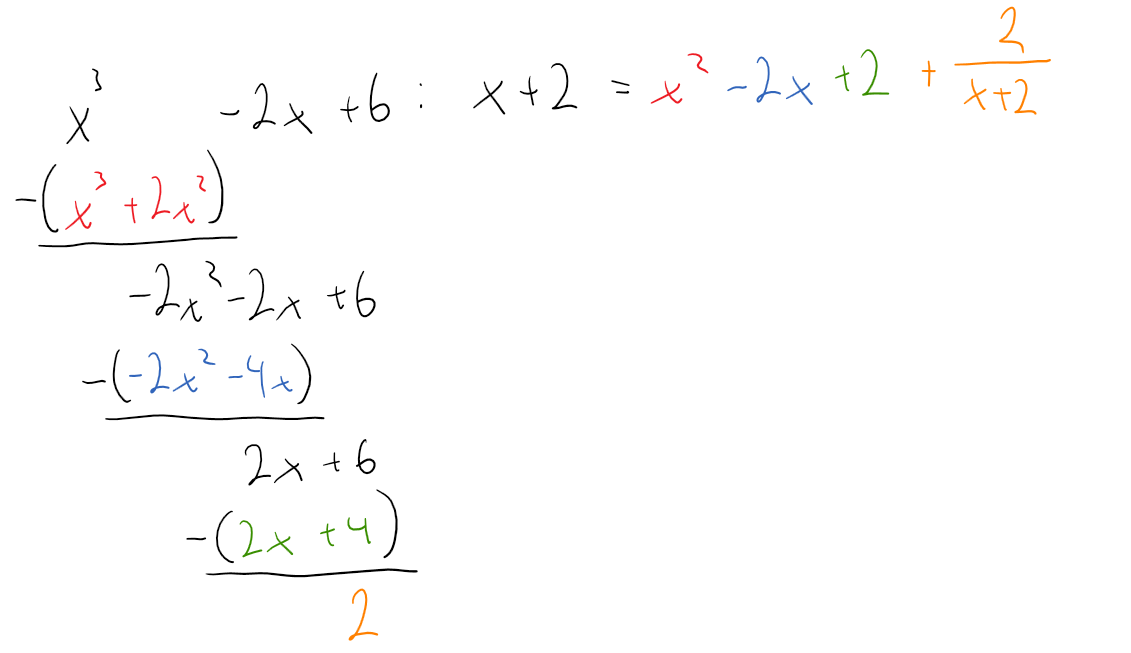 x³ -2x +6 : x+2 = x² -2x +2 + 2/(x+2)
-(x³ +2x²)
-2x² -2x +6
-(-2x² -4x)
2x +6
-(2x +4)
2